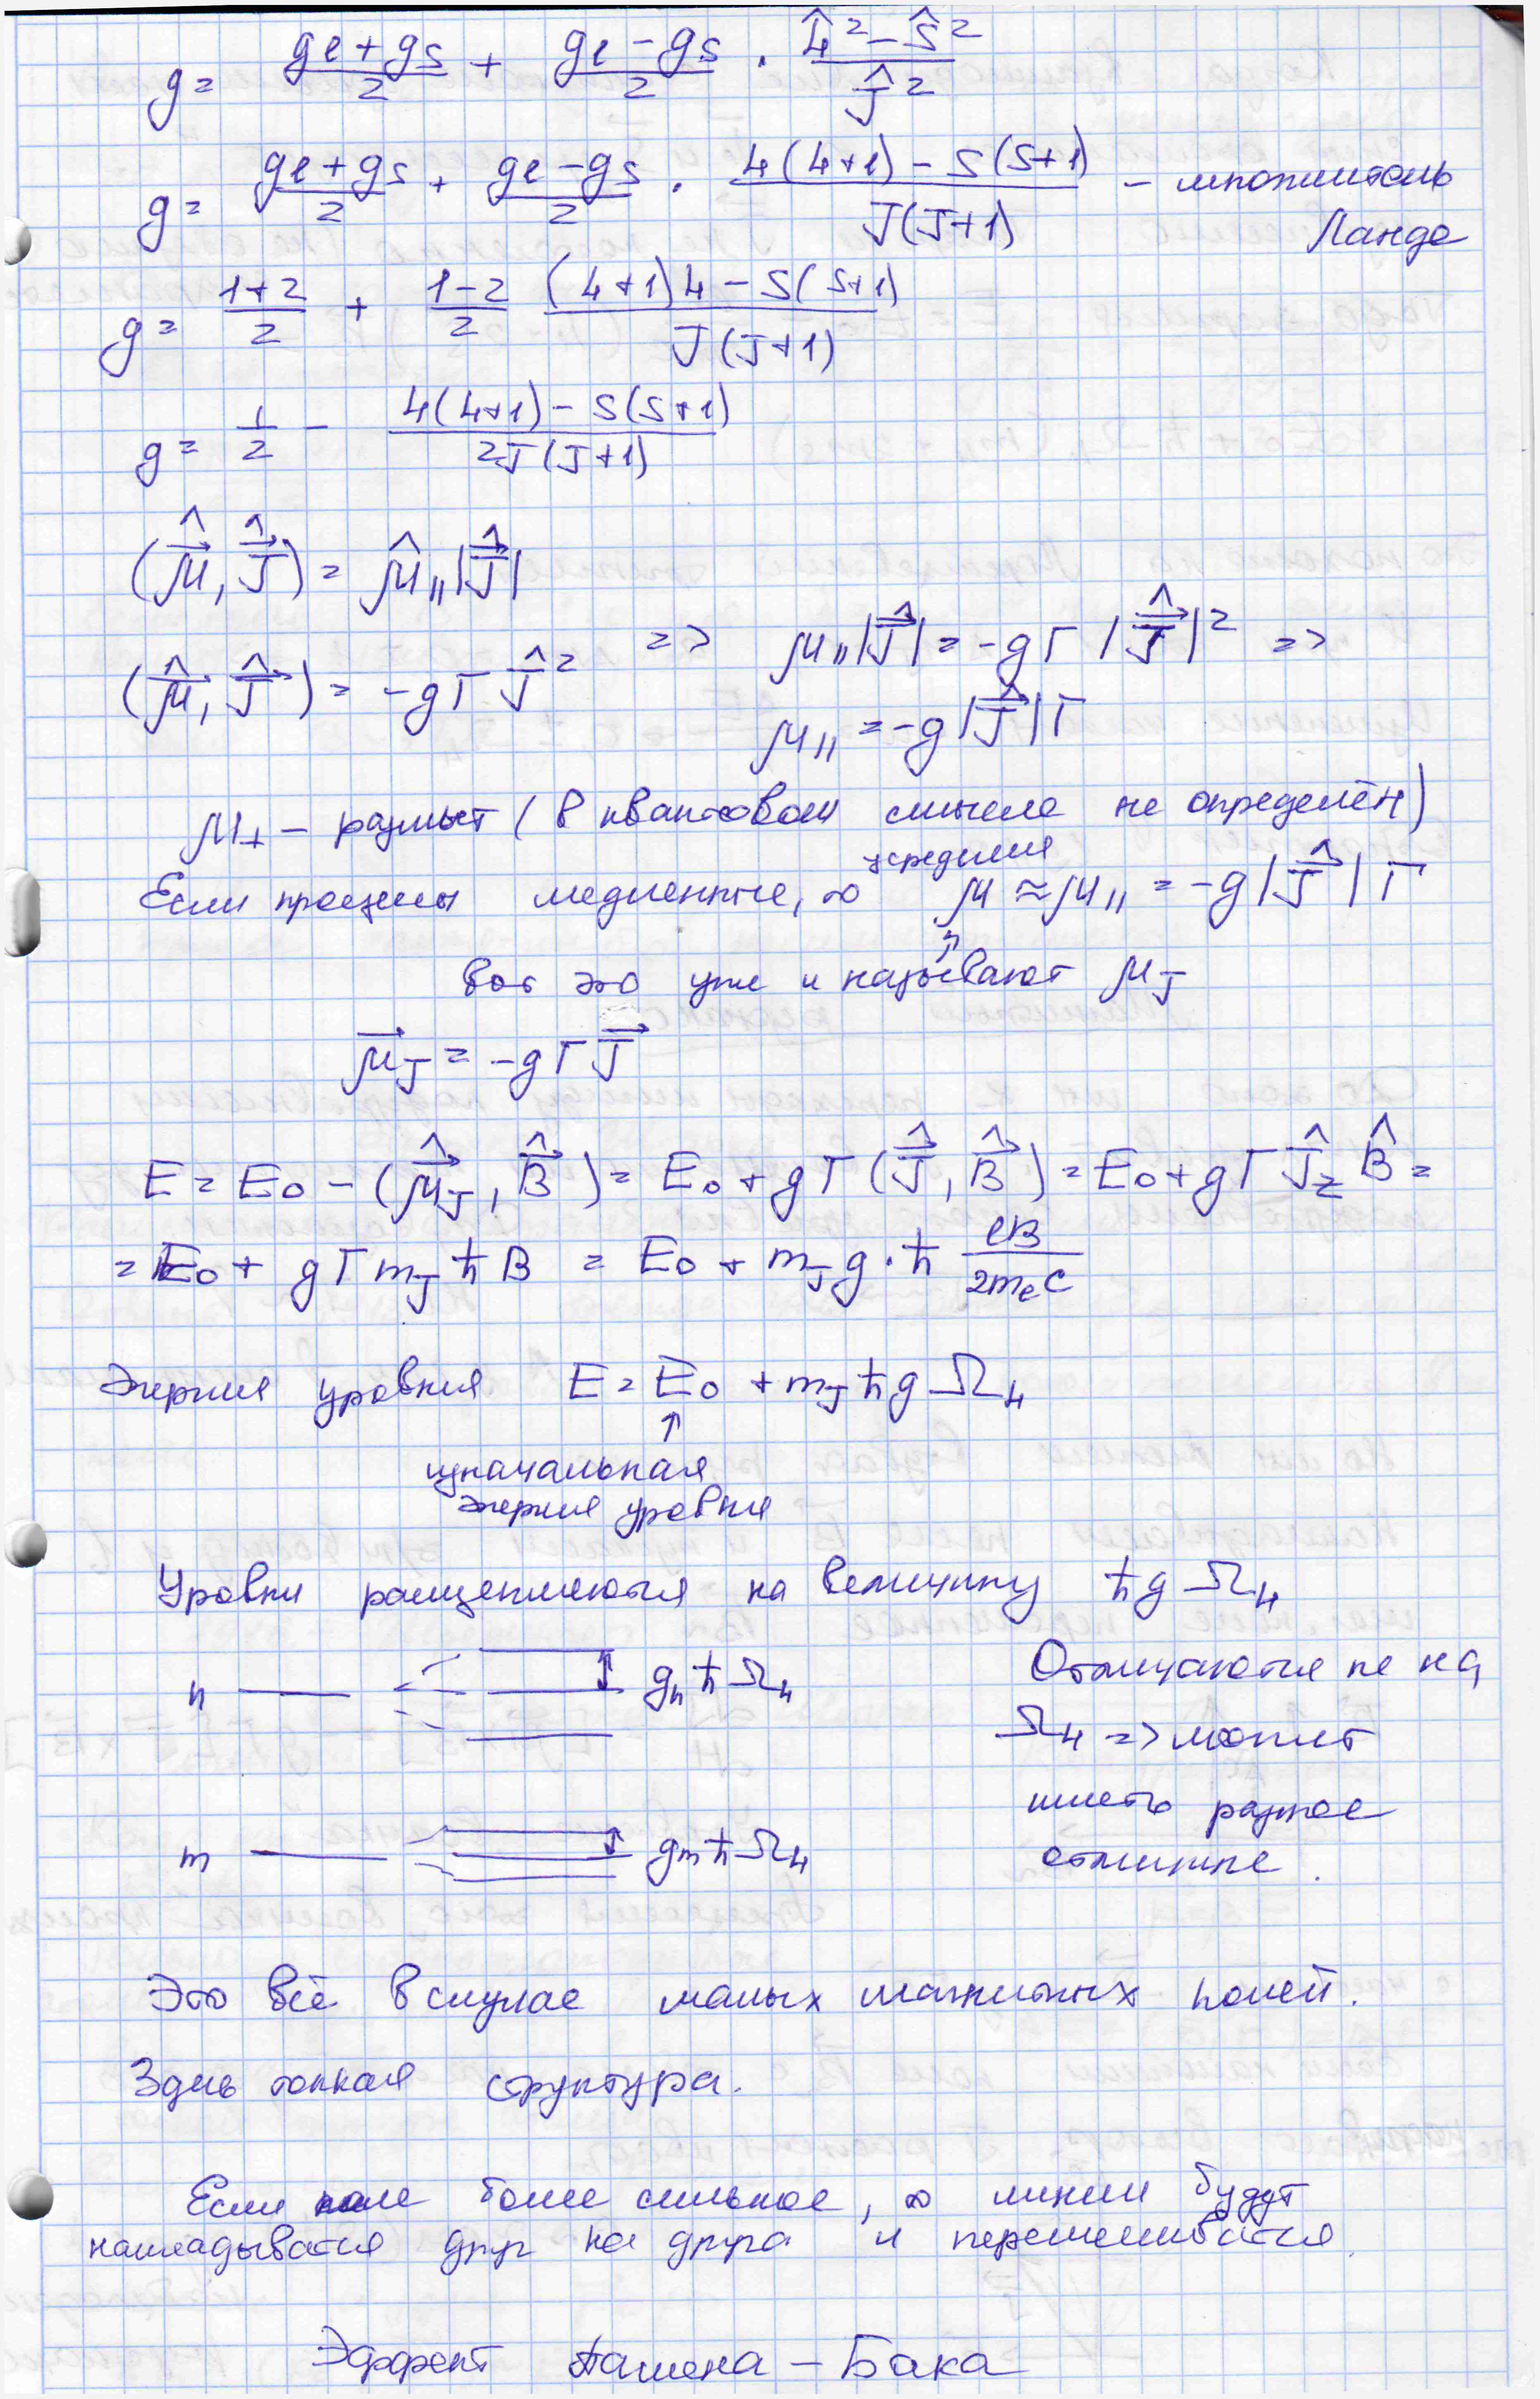 g = (gₗ + gₛ)/2 + (gₗ − gₛ)/2 · (L̂² − Ŝ²)/Ĵ²
g = (gₗ + gₛ)/2 + (gₗ − gₛ)/2 · (L(L+1) − S(S+1))/(J(J+1)) – множитель
Ланде
g = (1+2)/2 + (1−2)/2 ((L+1)L − S(S+1))/(J(J+1))
g = 1/2 − (L(L+1) − S(S+1))/(2J(J+1))
(μ̂⃗, Ĵ⃗) = μ̂_∥ |Ĵ⃗|
=> μ_∥ |Ĵ⃗| = −gΓ |Ĵ⃗|² =>
(μ̂⃗, Ĵ⃗) = −gΓ Ĵ⃗²
μ_∥ = −g |Ĵ⃗| Γ
μ_⊥ – размыт (в квантовом смысле не определён)
усредняя
Если процессы медленные, то μ ≈ μ_∥ = −g |Ĵ⃗| Γ
↑
вот это уже и называют μ_J
μ⃗_J = −gΓ J⃗
E = E₀ − (μ̂⃗_J, B̂⃗) = E₀ + gΓ (Ĵ⃗, B̂⃗) = E₀ + gΓ Ĵ_z B̂ =
= E₀ + gΓ m_J ħ B = E₀ + m_J g · ħ eB/(2mₑc)
Энергия уровня E = E₀ + m_J ħ g Ω_L
↑
изначальная
энергия уровня
Уровни расщепляются на величину ħ g Ω_L
n gₙ ħ Ω_L Отличаются не на
Ω_L => может
иметь разное
m gₘ ħ Ω_L отличие.
Это всё в случае малых магнитных полей.
Здесь тонкая структура.
Если поле более сильное, то линии будут
накладыватся друг на друга и перемешиватся.
Эффект Пашена – Бака